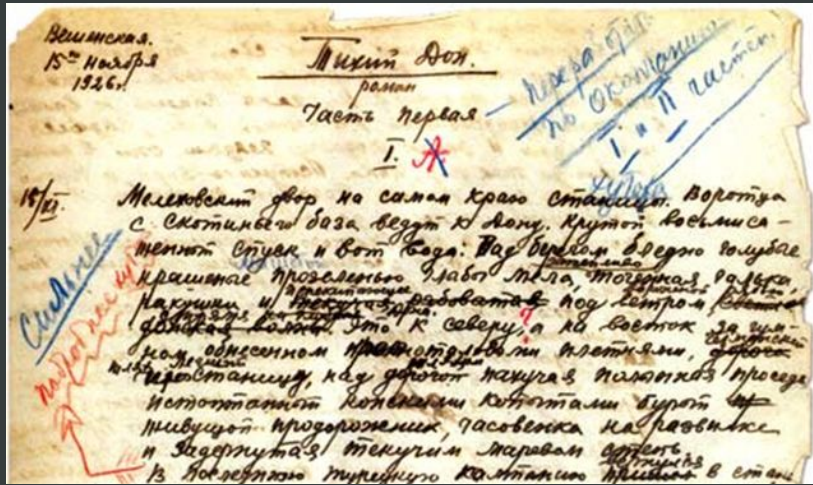 Вешенская.
15го ноября
1926г.
Тихий Дон.
роман
Часть первая
I.
– перера
по окончании
I и II частей.
хутора
15/XI.
Мелеховский двор на самом краю станицы. Воротца
с скотиньего база ведут к Дону. Крутой восьмиса-
женный спуск и вот вода: Над берегом бледно голубые
крашеные прозеленью глабы мела, точеная галька,
ракушки и под ветром
донская волна. Это к северу, а на восток за гум-
ном обнесенном плетнями,
станицу, над дорогой пахучая полынная проседь
истоптанный конскими копытами бурый
живущой придорожник, часовенка на развилке
и задернутая текучим маревом степь
В последнюю турецкую кампанию в стани
Сильнее
подробнее